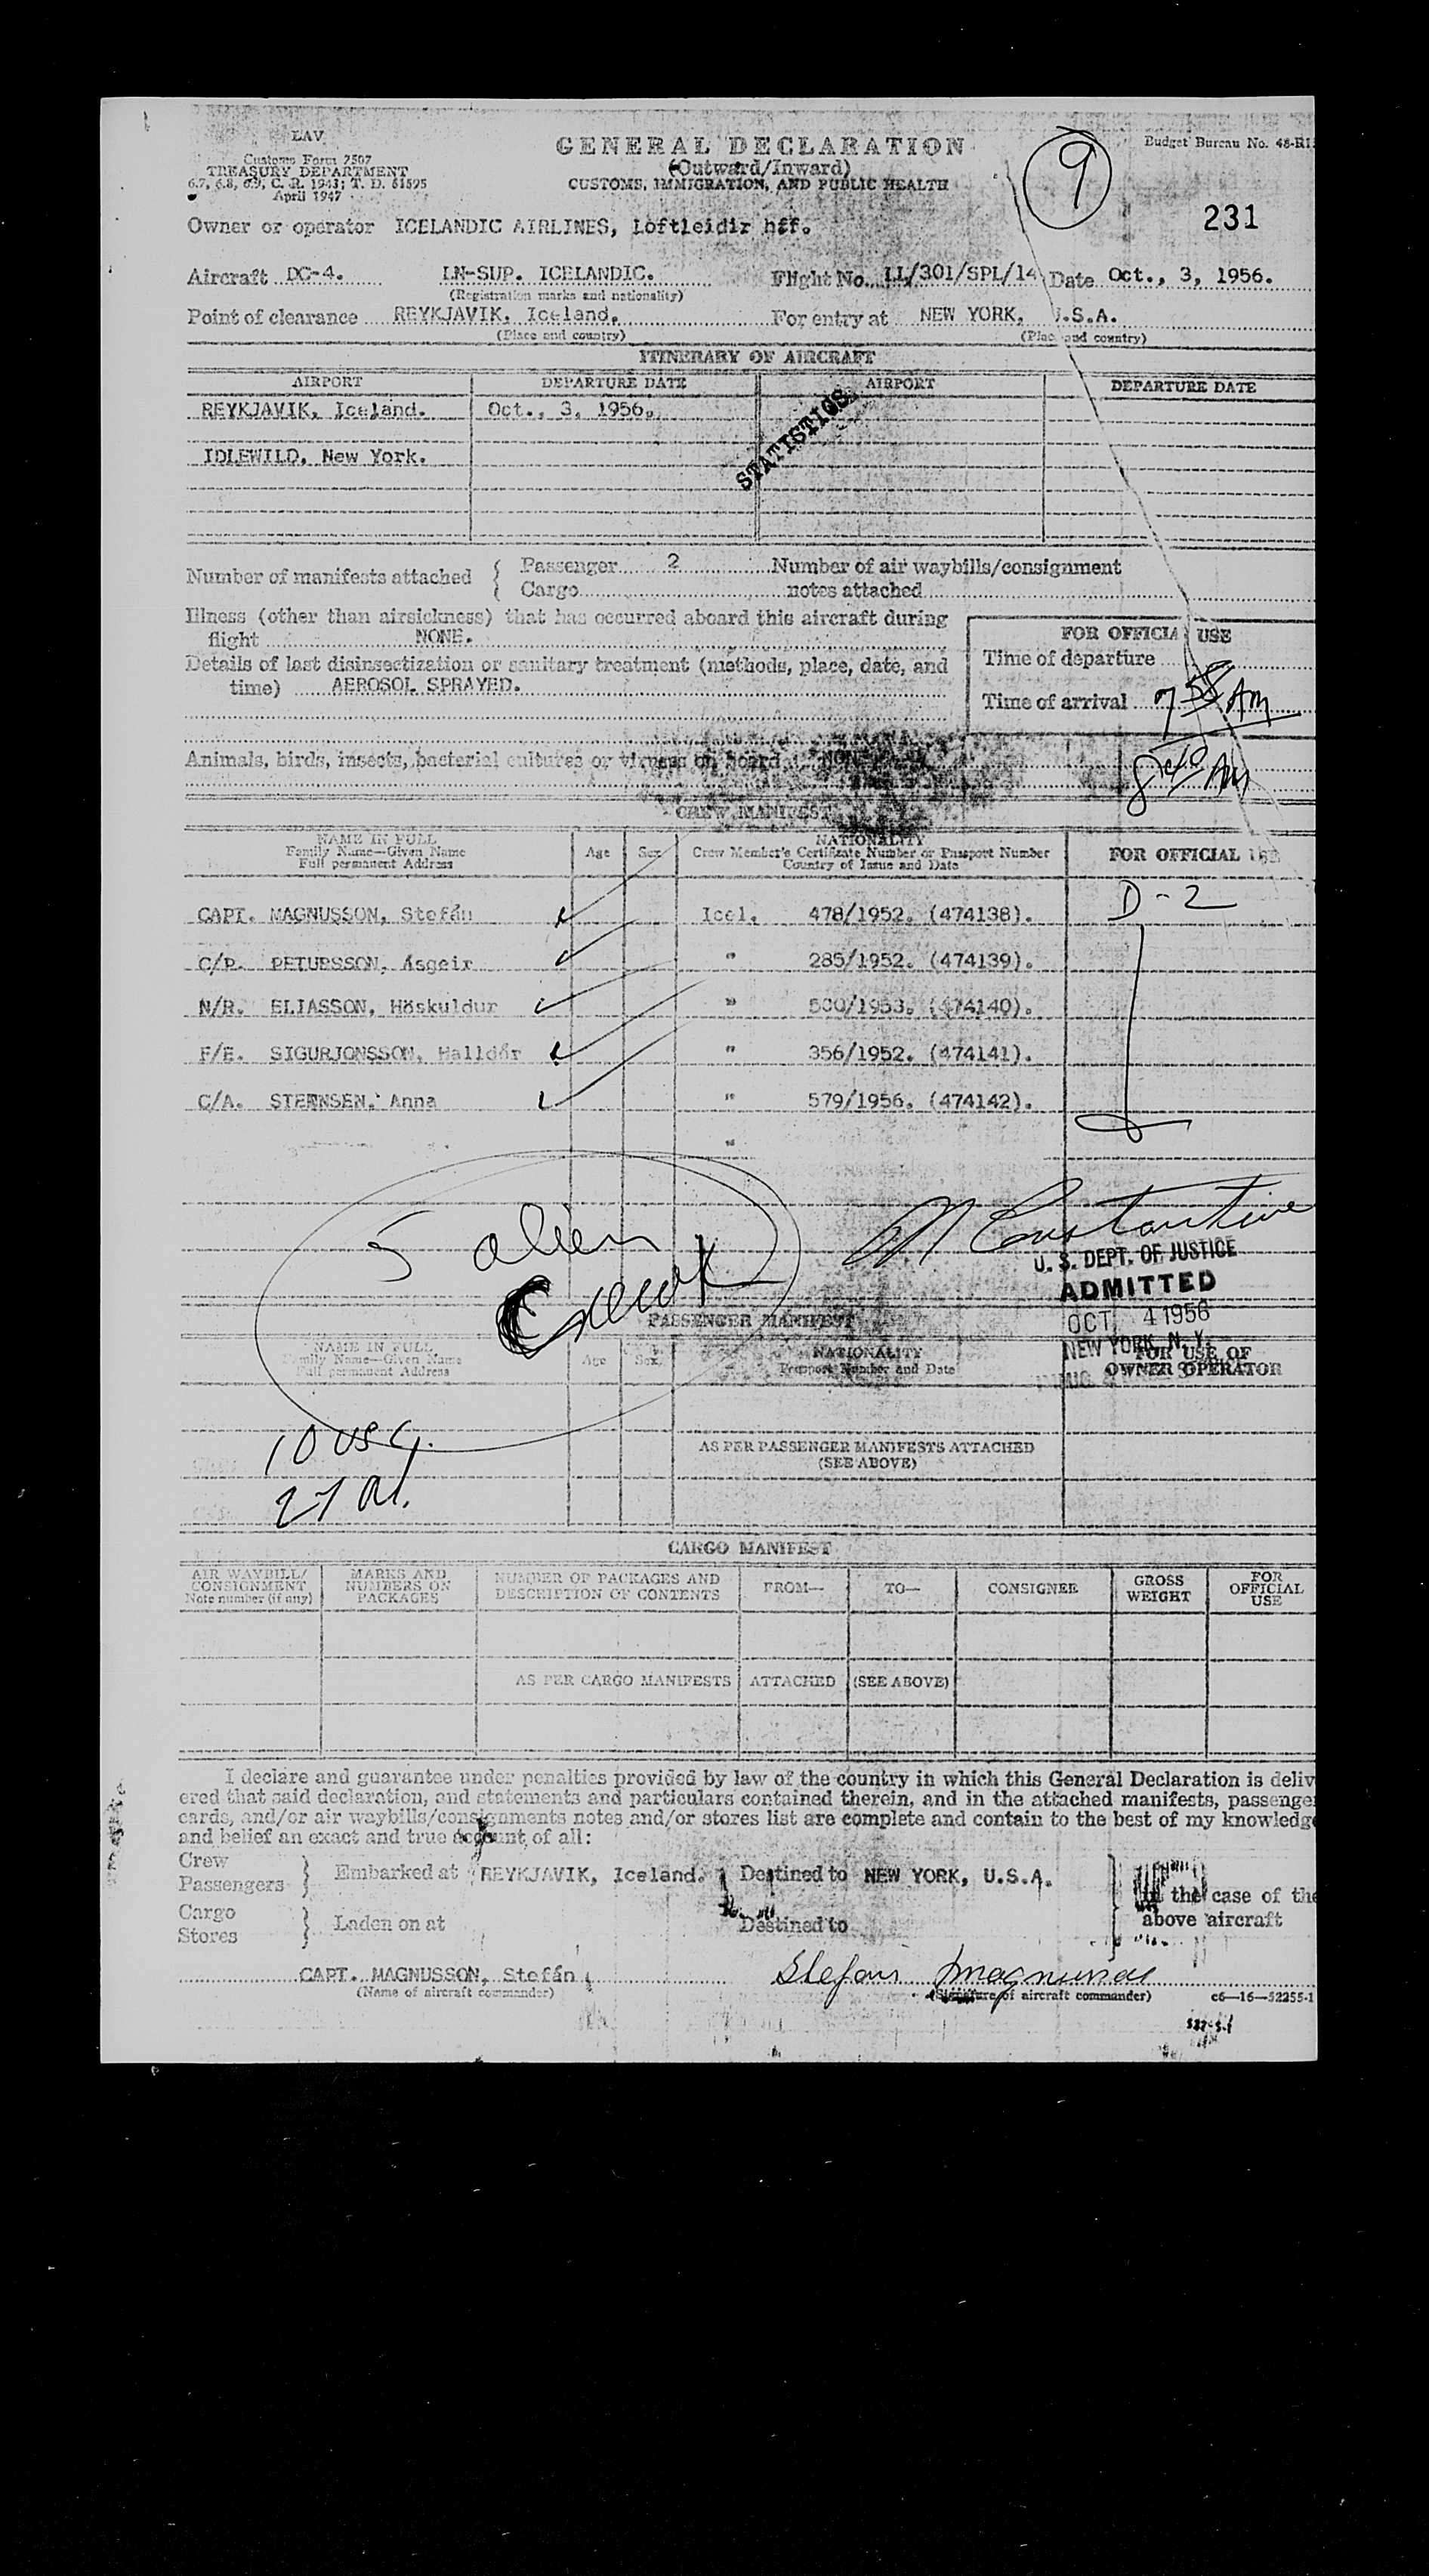 LAV
Customs Form 7507
TREASURY DEPARTMENT
6.7, 6.8, 6.9, C. R. 1943; T. D. 51595
April 1947
GENERAL DECLARATION
(Outward/Inward)
CUSTOMS, IMMIGRATION, AND PUBLIC HEALTH
9
Budget Bureau No. 48-R1
231
Owner or operator ICELANDIC AIRLINES, Loftleidir hff.
Aircraft DC-4. LN-SUP. ICELANDIC. Flight No. LL/301/SPL/14 Date Oct., 3, 1956.
(Registration marks and nationality)
Point of clearance REYKJAVIK, Iceland. For entry at NEW YORK, U.S.A.
(Place and country) (Place and country)
ITINERARY OF AIRCRAFT
AIRPORT DEPARTURE DATE AIRPORT DEPARTURE DATE
REYKJAVIK, Iceland. Oct., 3, 1956.
STATISTICS
IDLEWILD, New York.
Number of manifests attached { Passenger 2 Number of air waybills/consignment
Cargo notes attached
Illness (other than airsickness) that has occurred aboard this aircraft during
flight NONE.
Details of last disinsectization or sanitary treatment (methods, place, date, and
time) AEROSOL SPRAYED.
FOR OFFICIAL USE
Time of departure
Time of arrival 7 55 AM
8 40 AM
Animals, birds, insects, bacterial cultures or viruses on board NON
CREW MANIFEST
NAME IN FULL
Family Name—Given Name
Full permanent Address
Age Sex
NATIONALITY
Crew Member's Certificate Number or Passport Number
Country of Issue and Date
FOR OFFICIAL USE
D-2
CAPT. MAGNUSSON, Stefán Icel. 478/1952. (474138).
C/P. PETURSSON, Ásgeir " 285/1952. (474139).
N/R. ELIASSON, Höskuldur " 500/1953. (474140).
F/E. SIGURJONSSON, Halldór " 356/1952. (474141).
C/A. STEPHENSEN, Anna " 579/1956. (474142).
"
5 alien
Crew
U. S. DEPT. OF JUSTICE
ADMITTED
OCT 4 1956
NEW YORK, N. Y.
PASSENGER MANIFEST
NAME IN FULL
Family Name—Given Name
Full permanent Address
Age Sex
NATIONALITY
Passport Number and Date
FOR USE OF
OWNER OPERATOR
10 USC.
27 Al.
AS PER PASSENGER MANIFESTS ATTACHED
(SEE ABOVE)
CARGO MANIFEST
AIR WAYBILL/
CONSIGNMENT
Note number (if any)
MARKS AND
NUMBERS ON
PACKAGES
NUMBER OF PACKAGES AND
DESCRIPTION OF CONTENTS
FROM— TO— CONSIGNEE
GROSS
WEIGHT
FOR
OFFICIAL
USE
AS PER CARGO MANIFESTS ATTACHED (SEE ABOVE)
I declare and guarantee under penalties provided by law of the country in which this General Declaration is deliv
ered that said declaration, and statements and particulars contained therein, and in the attached manifests, passenger
cards, and/or air waybills/consignments notes and/or stores list are complete and contain to the best of my knowledge
and belief an exact and true account of all:
Crew
Passengers } Embarked at REYKJAVIK, Iceland. Destined to NEW YORK, U.S.A.
Cargo
Stores } Laden on at Destined to
in the case of the
above aircraft
CAPT. MAGNUSSON, Stefán Stefán Magnusson
(Name of aircraft commander) (Signature of aircraft commander) c6—16—52255-1